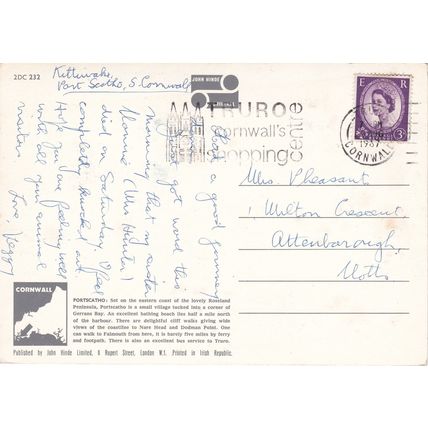 2DC 232
Kittiwake,
Port Scatho, S. Cornwall
JOHN HINDE
E R
3D
TRURO
Cornwall's
shopping
centre
1967
CORNWALL
had a good journey
just got word this
morning that my sister
Monnie (Mrs Hunter)
died on Saturday. I feel
completely knocked out
Hope you are feeling well
with all your animal
mates.
Love, Peggy
Mrs. Pheasant,
1, Milton Crescent,
Attenborough,
Notts
CORNWALL
PORTSCATHO: Set on the eastern coast of the lovely Roseland
Peninsula, Portscatho is a small village tucked into a corner of
Gerrans Bay. An excellent bathing beach lies half a mile north
of the harbour. There are delightful cliff walks giving wide
views of the coastline to Nare Head and Dodman Point. One
can walk to Falmouth from here, it is barely five miles by ferry
and footpath. There is also an excellent bus service to Truro.
Published by John Hinde Limited, 8 Rupert Street, London W.1. Printed in Irish Republic.